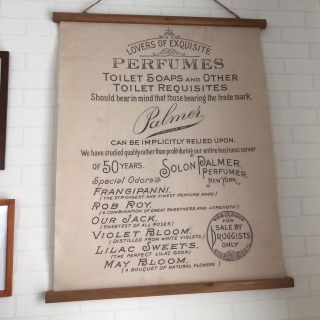 LOVERS OF EXQUISITE
PERFUMES
TOILET SOAPS AND OTHER
TOILET REQUISITES
Should bear in mind that those bearing the trade mark,
Palmer
CAN BE IMPLICITLY RELIED UPON.
We have studied quality rather than profit during our entire business career
of 50 YEARS. SOLON PALMER,
PERFUMER,
NEW YORK.
Special Odors
FRANGIPANNI,
(THE STRONGEST AND FINEST PERFUME MADE)
ROB ROY,
(A COMBINATION OF GREAT SWEETNESS AND STRENGTH)
OUR JACK,
(SWEETEST OF ALL ROSES)
VIOLET BLOOM,
(DISTILLED FROM WHITE VIOLETS)
LILAC SWEETS,
(THE PERFECT LILAC ODOR)
MAY BLOOM,
(A BOUQUET OF NATURAL FLOWERS)
FOR
SALE BY
DRUGGISTS
ONLY